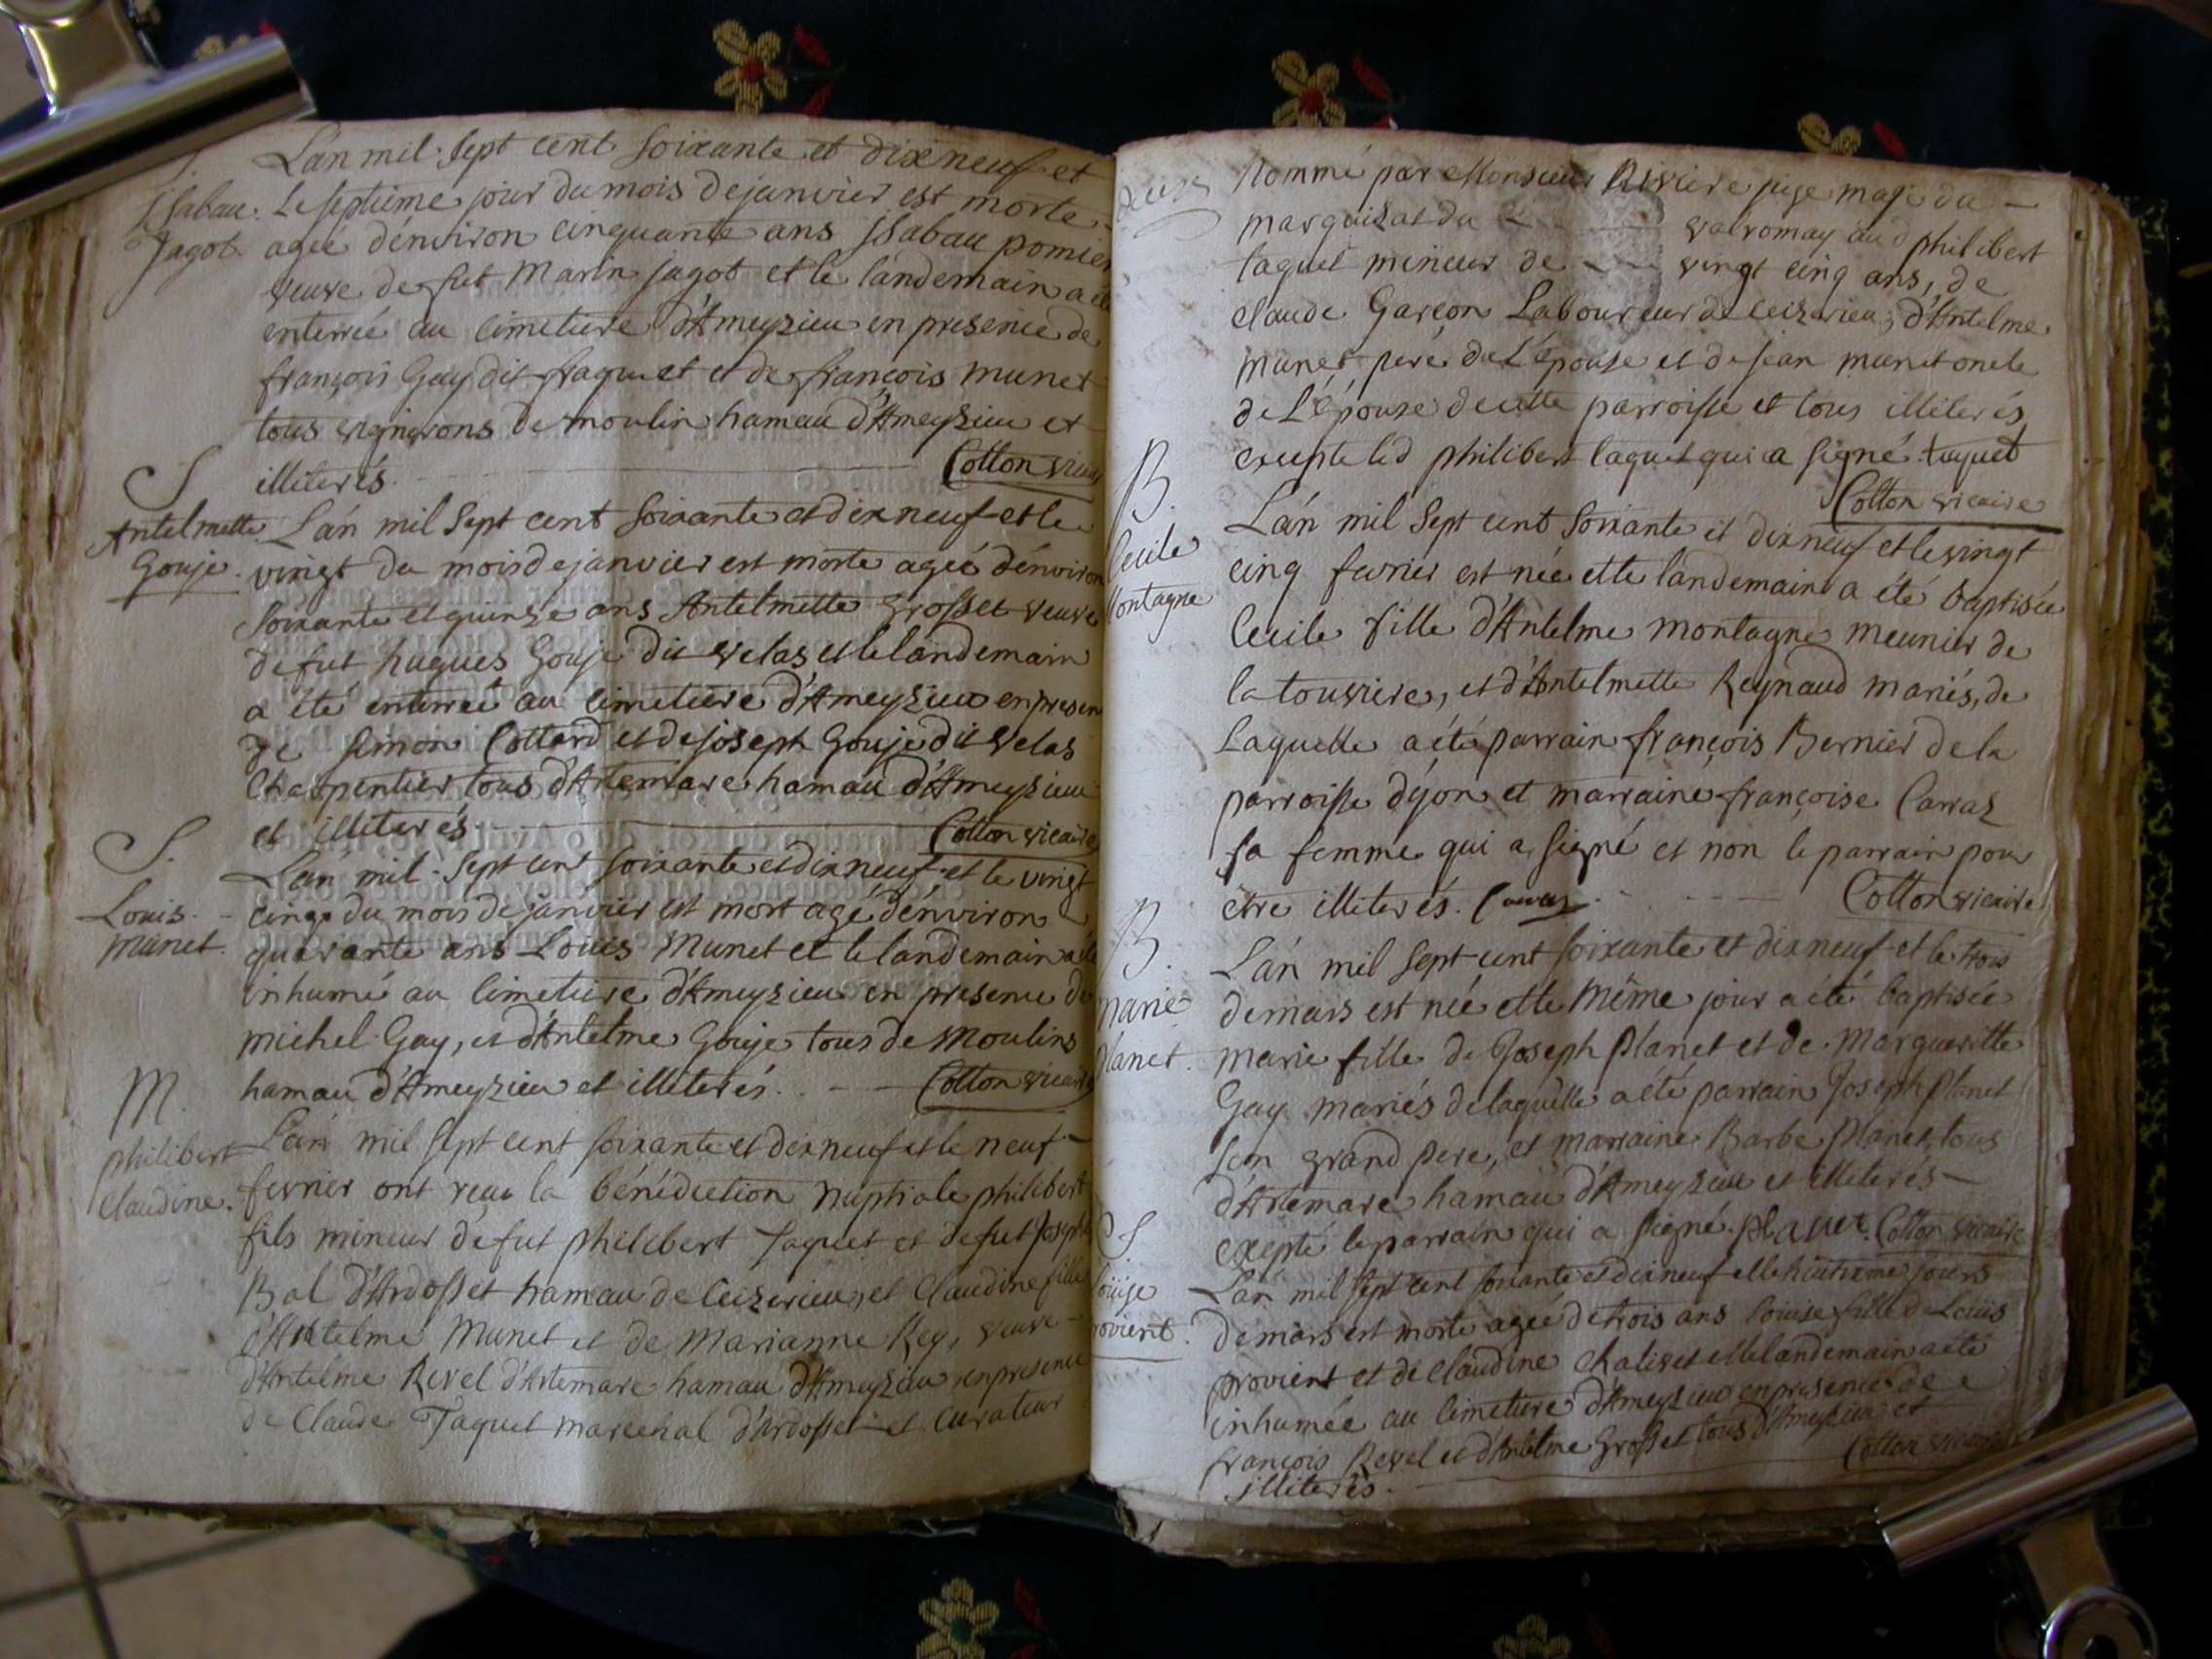 S.
Isabau.
Jagot.
L'an mil sept cent soixante et dix neuf et
le septieme jour du mois de janvier est morte
ageé d'environ cinquante ans Isabau pomier
veuve de fut Marin jagot et le landemain a été
enterreé au cimetiere d'Ameyzieu en presence de
françois Gay dit fraquet et de françois munet
tous vignerons de moulin hamau d'Ameyzieu et
illiterés. Cotton vicaire
S
Antelmette
Gouje.
L'an mil sept cent soixante et dix neuf et le
vingt du mois de janvier est morte ageé d'environ
soixante et quinze ans Antelmette Grosset veuve
de fut hugues Gouje dit velas et le landemain
a été enterreé au cimetiere d'Ameyzieu en presen
de simon Cottard et de joseph Gouje dit velas
Charpentier tous d'Artemare hamau d'Ameyzieu
et illiterés. Cotton vicaire
S.
Louis
munet.
L'an mil sept cent soixante et dix neuf et le vingt
cinq du mois de janvier est mort agé d'environ
quarante ans Louis Munet et le landemain a été
inhumé au cimetiere d'Ameyzieu en presence de
michel Gay, et d'Antelme Gouje tous de Moulins
hamau d'Ameyzieu et illiterés. Cotton vicaire
M.
philibert
Claudine.
L'an mil sept cent soixante et dix neuf et le neuf
fevrier ont reçu la bénédiction nuptiale philibert
fils mineur de fut philibert Taquet et de fut Josephe
Bal d'Ardosset hamau de Ceizerieu, et Claudine fille
d'Antelme Munet et de Marianne Rey, veuve
d'Antelme Revel d'Artemare hamau d'Ameyzieu, en presence
de Claude Taquet marechal d'Ardosset et Curateur
Nommé par Monsieur Riviere juge maje du
marquisat du valromay aud philibert
taquet mineur de vingt cinq ans, de
claude Garçon Laboureur de Ceizerieu, d'Antelme
munet pere de L'épouse et de jean munet oncle
de L'épouse de cette parroisse et tous illiterés
excepte led philibert taquet qui a signé. taquet
Cotton vicaire
B.
Cecile
Montagne
L'an mil sept cent soixante et dix neuf et le vingt
cinq fevrier est née et le landemain a été baptisée
Cecile fille d'Antelme montagne meunier de
la touviere, et d'Antelmette Reynaud mariés, de
Laquelle a été parrain françois Bernier de la
parroisse d'yon et marraine françoise Carraz
sa femme qui a signé et non le parrain pour
etre illiterés. Carraz. Cotton vicaire
B.
marie
planet.
L'an mil sept cent soixante et dix neuf et le trois
de mars est née et le même jour a été baptisée
marie fille de Joseph planet et de margueritte
Gay mariés de laquelle a été parrain Joseph planet
son grand pere, et marraine Barbe planet, tous
d'Artemare hamau d'Ameyzieu et illiterés
excepté le parrain qui a signé. planet. Cotton vicaire
S.
Louise
provient.
L'an mil sept cent soixante et dix neuf et le huitieme jours
de mars est morte ageé de trois ans Louise fille de Louis
provient et de claudine chalivet et le landemain a été
inhumée au cimetiere d'Ameyzieu en presence de
françois Revel et d'Antelme Grosset tous d'Ameyzieu et
illiterés. Cotton vicaire